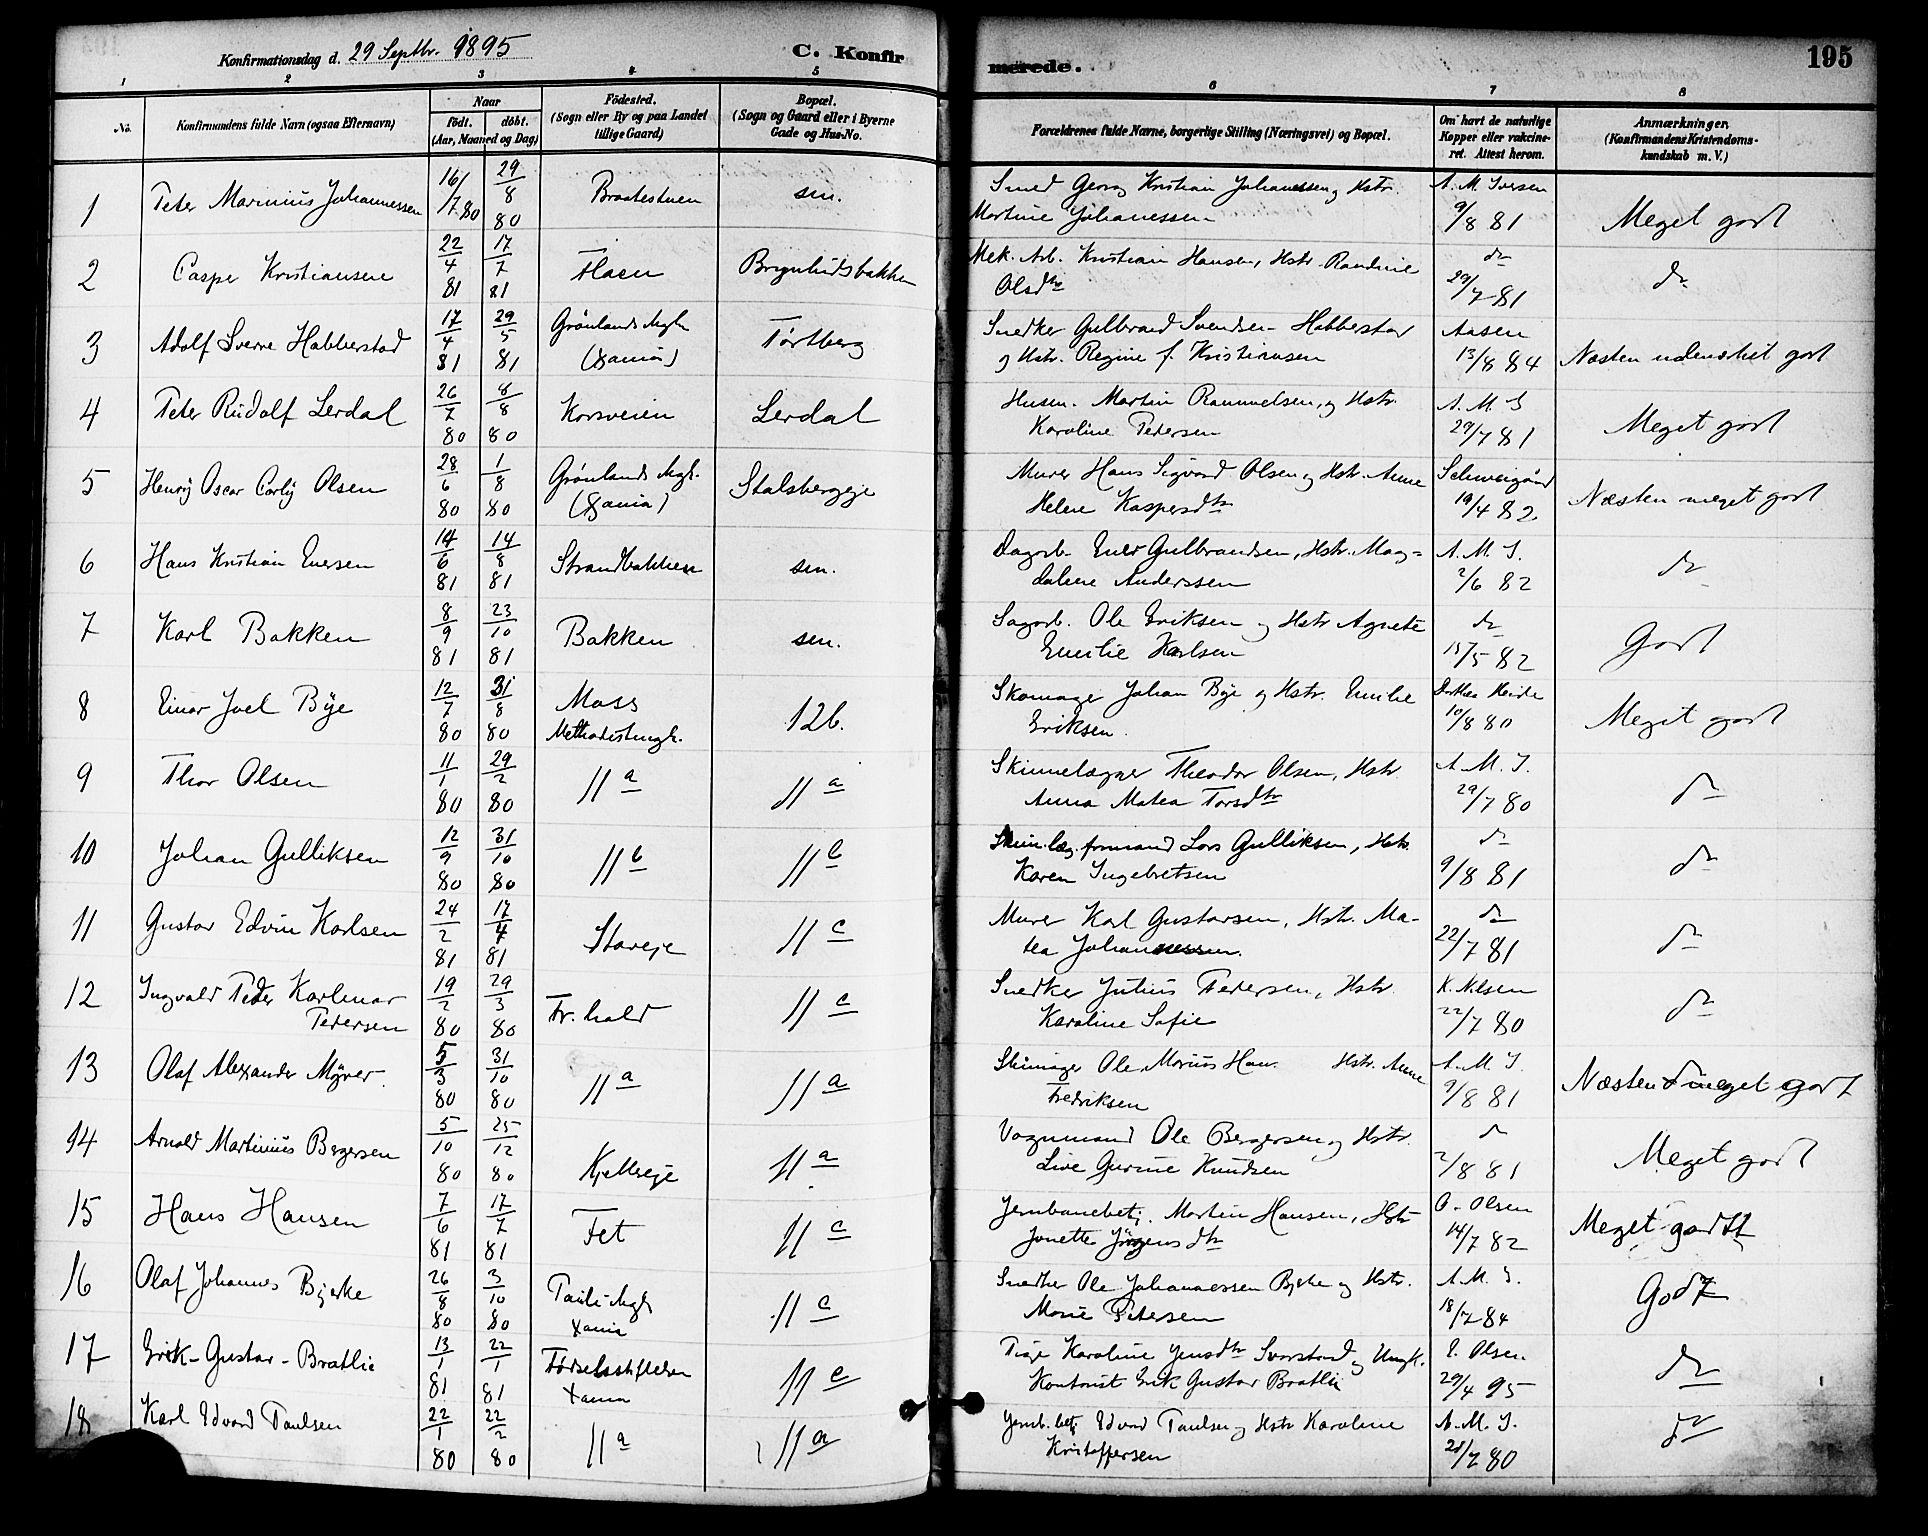 Konfirmationsdag d. 29 Septbr. 1895
C. Konfirmerede.
195
1 2 3 4 5 6 7 8
No.
Konfirmandens fulde Navn (ogsaa Efternavn)
Naar
født. døbt.
(Aar, Maaned og Dag)
Fødested.
(Sogn eller By og paa Landet
tillige Gaard)
Bopæl.
(Sogn og Gaard eller i Byerne
Gade og Hus-No.
Forældrenes fulde Navne, borgerlige Stilling (Næringsvei) og Bopæl.
Om havt de naturlige
Kopper eller vakcine-
ret. Attest herom.
Anmærkninger,
(Konfirmandens Kristendoms-
kundskab m. V.)
1 Peter Marinius Johannessen 16/7 80 29/8 80 Braatestuen sm. Smed Georg Kristian Johannessen og Hstr. A. M. Iversen
Martine Johanessen 9/8 81 Meget godt
2 Casper Kristiansen 22/4 81 17/7 81 Flaen Brynhildsbakken Mek. Arb. Kristian Hansen, Hstr. Randine do
Olsdtr 29/7 81 do
3 Adolf Sverre Habberstad 17/4 81 29/5 81 Grønlands Mgh. (Xania) Tørtberg Snedker Gulbrand Svendsen Habberstad Aasen
og Hstr. Regine f. Kristiansen 13/8 84 Næsten udmerket godt
4 Peter Rudolf Lerdal 26/7 80 8/8 80 Korsveien Lerdal Husm. Martin Rammelsen, og Hstr. A. M. I
Karoline Pedersen 29/7 81 Meget godt
5 Henry Oscar Carly Olsen 28/6 80 1/8 80 Grønlands Mgh. (Xania) Stalsbergeje Murer Hans Sigvard Olsen og Hstr. Anne
Helene Kaspersdtr 19/4 82 Næsten meget godt
6 Hans Kristian Eversen 14/6 81 14/8 81 Strandbakken sm. Dagarb. Ever Gulbrandsen, Hstr. Mag= A. M. I.
dalene Anderssen 2/6 82 do
7 Karl Bakken 8/9 81 23/10 81 Bakken sm. Sagarb. Ole Eriksen og Hstr Agnete do
Emilie Karlsen 15/5 82 Godt
8 Einar Joel Bye 12/7 80 31/8 80 Moss Methodistmgh. 12b. Skomager Johan Bye og Hstr. Emilie
Eriksen. 10/8 80 Meget godt
9 Thor Olsen 11/1 80 29/2 80 11 a 11 a Skindlægger Theodor Olsen, Hstr A. M. I.
Anna Matea Torsdtr 29/7 80 do
10 Johan Gulliksen 12/9 80 31/10 80 11 b 11 b Skin.læg. formand Lars Gulliksen, Hstr. do
Karen Ingebretsen 9/8 81 do
11 Gustav Edvin Karlsen 24/2 81 17/4 81 Stoveje 11 c Murer Karl Gustavsen, Hstr. Ma- do
tea Johannessen. 22/7 81 do
12 Ingvald Peder Karlmar Pedersen 19/2 80 29/3 80 Fr. hald 11 c Snedker Julius Pedersen, Hstr. K. Nilsen
Karoline Sofie 22/7 80 do
13 Olaf Alexander Myrer 5/3 80 31/10 80 11 a 11 a Ole Marius Han. Hstr. Anne A. M. I.
Fredriksen 9/8 81 Næsten meget godt
14 Arnold Martinius Bergersen 5/10 80 25/12 80 Kjelleseje 11 a Vognmand Ole Bergersen og Hstr. do
Live Gurine Knudsen 2/8 81 Meget godt
15 Hans Hansen 7/6 81 17/7 81 Fet 11 c Jernbanebetj. Martin Hansen, Hstr O. Olsen
Jonette Jørgensdtr 14/7 82 Meget godt
16 Olaf Johannes Bjerke 26/8 80 3/10 80 Pauli Mgh Xania 11 c Snedker Ole Johannessen Bjerke og Hstr. A. M. I.
Marie Petersen 18/7 84 Godt
17 Erik-Gustav-Bratlie 13/1 81 22/1 81 Fødselsstiftelsen Xania 11 c Pige Karoline Jensdtr Svarstad og Ungk. E. Olsen
Kontorist Erik Gustav Bratlie 29/4 95 do
18 Karl Edvard Paulsen 22/1 80 22/2 80 11 a 11 a Jernb. betj Edvard Paulsen og Hstr Karoline A. M. I.
Kristoffersen 28/7 80 do